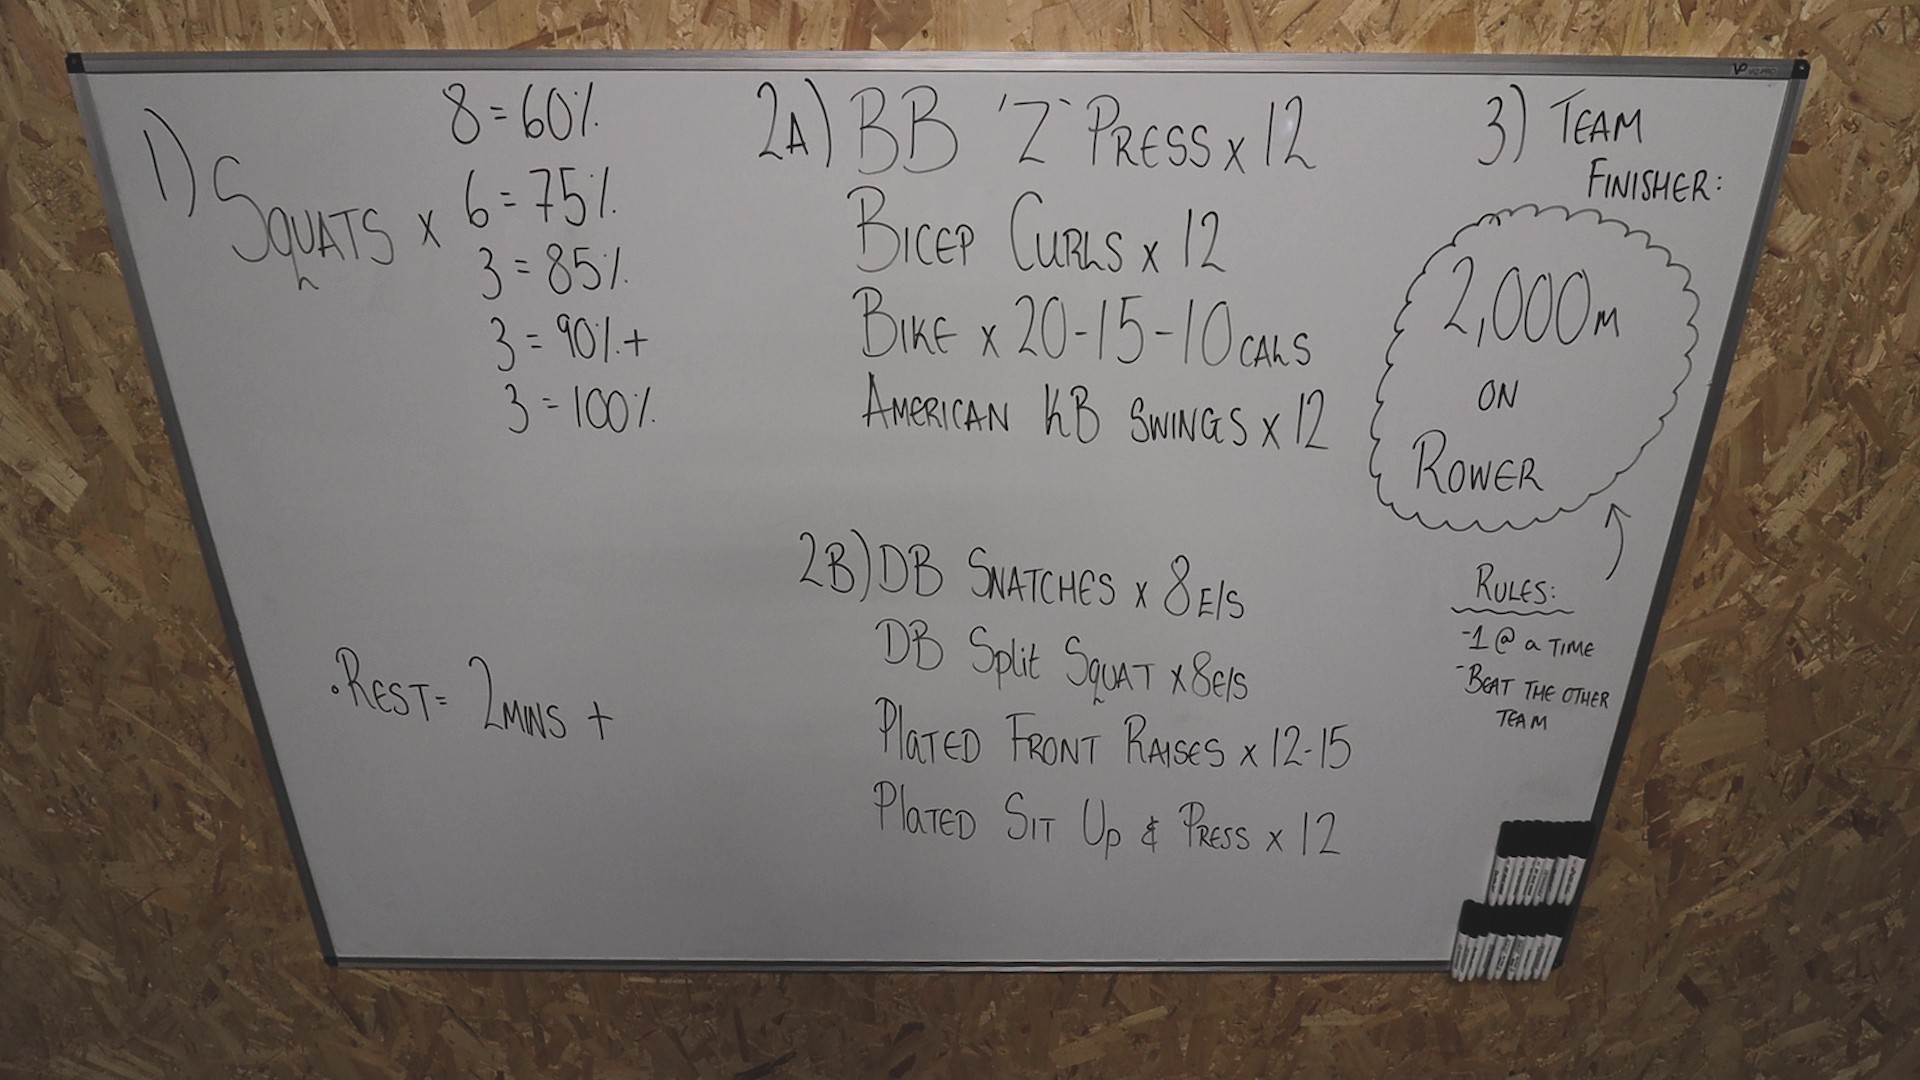 1) SQUATS x
8 = 60%
6 = 75%
3 = 85%
3 = 90%+
3 = 100%
• REST = 2MINS +
2A) BB 'Z' PRESS x 12
BICEP CURLS x 12
BIKE x 20-15-10 CALS
AMERICAN KB SWINGS x 12
2B) DB SNATCHES x 8 E/S
DB Split SQUAT x 8 E/S
PlATED FRONT RAISES x 12-15
PlATED SIT Up & PRESS x 12
3) TEAM
FINISHER:
2,000M
ON
ROWER
RULES:
-1 @ a TIME
-BEAT THE OTHER
TEAM